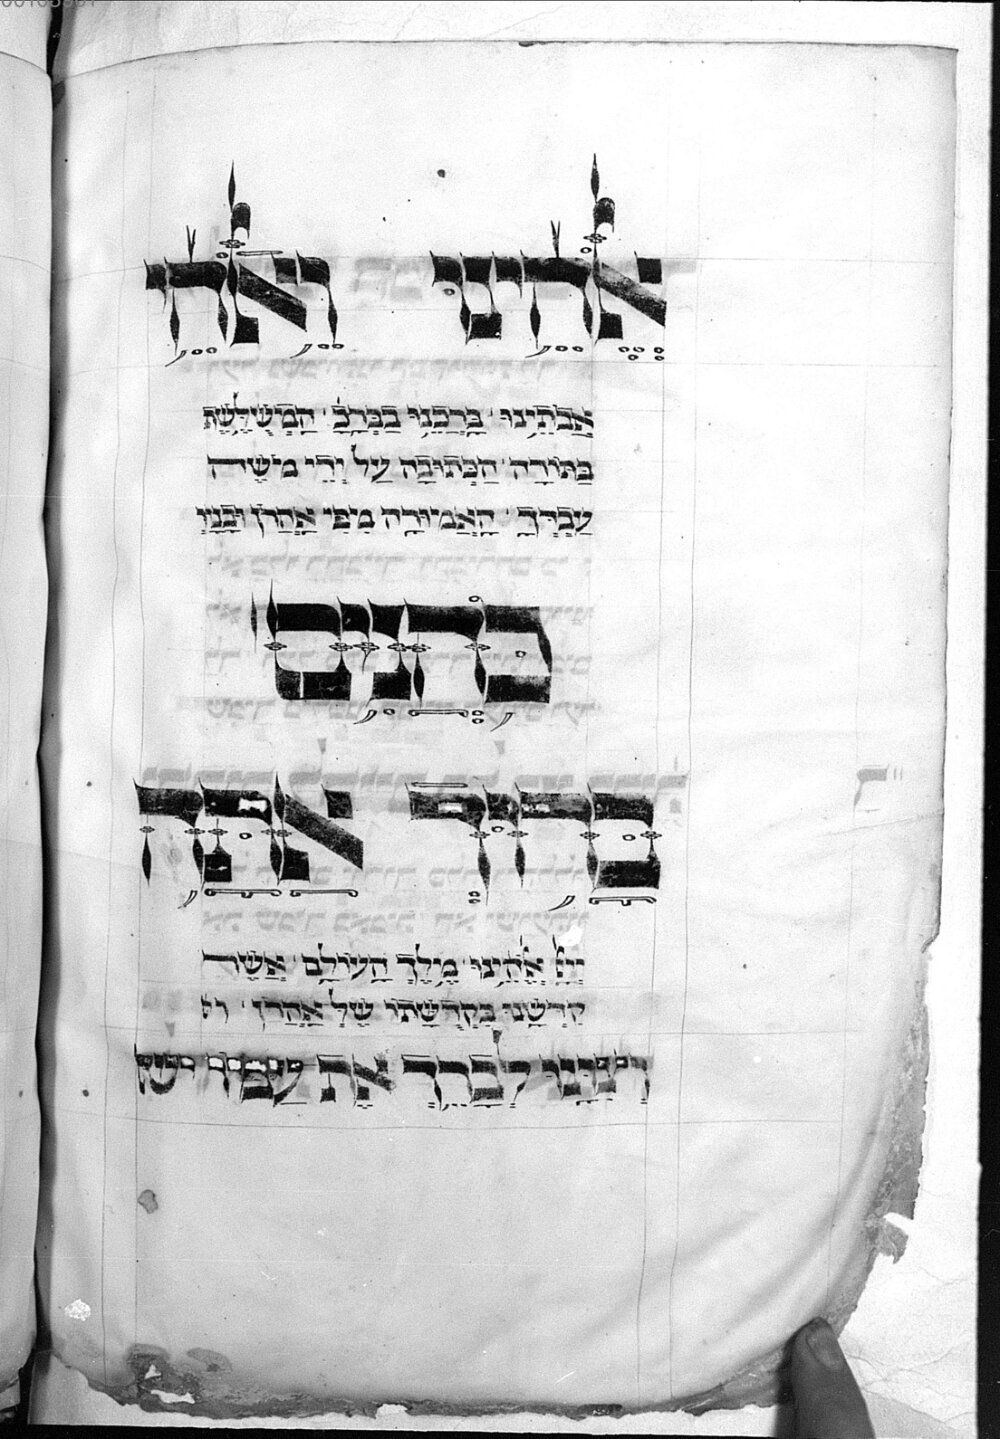 אלהינו ואלהי
אבתינו ברכנו בברכ' המשלשת
בתורה הכתובה על ידי משה
עבדך האמורה מפי אהרן ובניו
כהנים
ברוך אתה
ייי אלהינו מלך העולם אשר
קדשנו בקדשתו של אהרן
וציונו לברך את עמו ישר